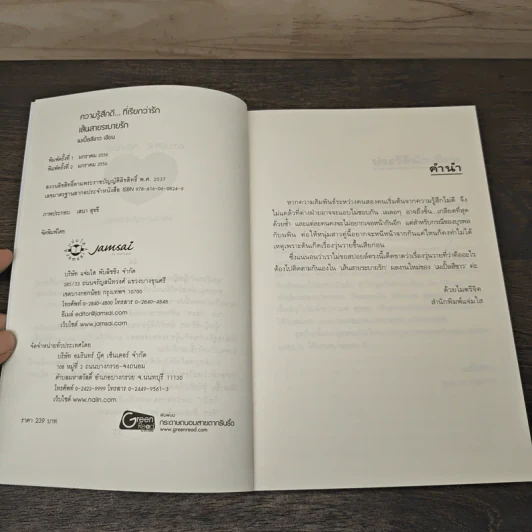 ความรู้สึกดี... ที่เรียกว่ารัก
เส้นสายระบายรัก
เมเปิ้ลสีขาว เขียน
พิมพ์ครั้งที่ 1 มกราคม 2556
พิมพ์ครั้งที่ 2 มกราคม 2556
สงวนลิขสิทธิ์ตามพระราชบัญญัติลิขสิทธิ์ พ.ศ. 2537
เลขมาตรฐานสากลประจำหนังสือ ISBN 978-616-06-0824-9
ภาพประกอบ เสนา สุขชี
จัดพิมพ์โดย
Jamsai
บริษัท แจ่มใส พับลิชชิ่ง จำกัด
285/33 ถนนจรัญสนิทวงศ์ แขวงบางขุนศรี
เขตบางกอกน้อย กรุงเทพฯ 10700
โทรศัพท์ 0-2840-4800 โทรสาร 0-2840-4848
อีเมล์ editor@jamsai.com
เว็บไซต์ www.jamsai.com
จัดจำหน่ายทั่วประเทศโดย
บริษัท อมรินทร์ บุ๊ค เซ็นเตอร์ จำกัด
หมู่ที่ 2 ถนนบางกรวย-จงถนอม
ตำบลมหาสวัสดิ์ อำเภอบางกรวย จ.นนทบุรี 11130
โทรศัพท์ 0-2423-9999 โทรสาร 0-2449-9561-3
เว็บไซต์ www.naiin.com
ราคา 239 บาท
Green Read
พิมพ์บน
กระดาษถนอมสายตากรีนรี้ด
www.greenread.com
คำนำ
หากความสัมพันธ์ระหว่างคนสองคนเริ่มต้นจากความรู้สึกไม่ดี จึง
ไม่แคล้วที่ต่างฝ่ายอาจจะแอบไม่ชอบกัน เผลอๆ อาจถึงขั้น...เกลียดที่สุด
ด้วยซ้ำ และแต่ละคนคงจะไม่อยากเจอหน้ากันอีก แต่สำหรับกรณีของบุรพล
กับนพิน ต่อให้หนุ่มสาวคู่นี้อยากจะหนีหน้าจากกันแค่ไหนก็คงทำไม่ได้
เหตุเพราะดันเกิดเรื่องวุ่นวายขึ้นเสียก่อน
ซึ่งแน่นอนว่าเราไม่ขอสปอยล์ตรงนี้เด็ดขาดว่าเรื่องวุ่นวายที่ว่าคืออะไร
ต้องไปติดตามกันเองใน 'เส้นสายระบายรัก' ผลงานใหม่ของ 'เมเปิ้ลสีขาว' ค่ะ
ด้วยไมตรีจิต
สำนักพิมพ์แจ่มใส